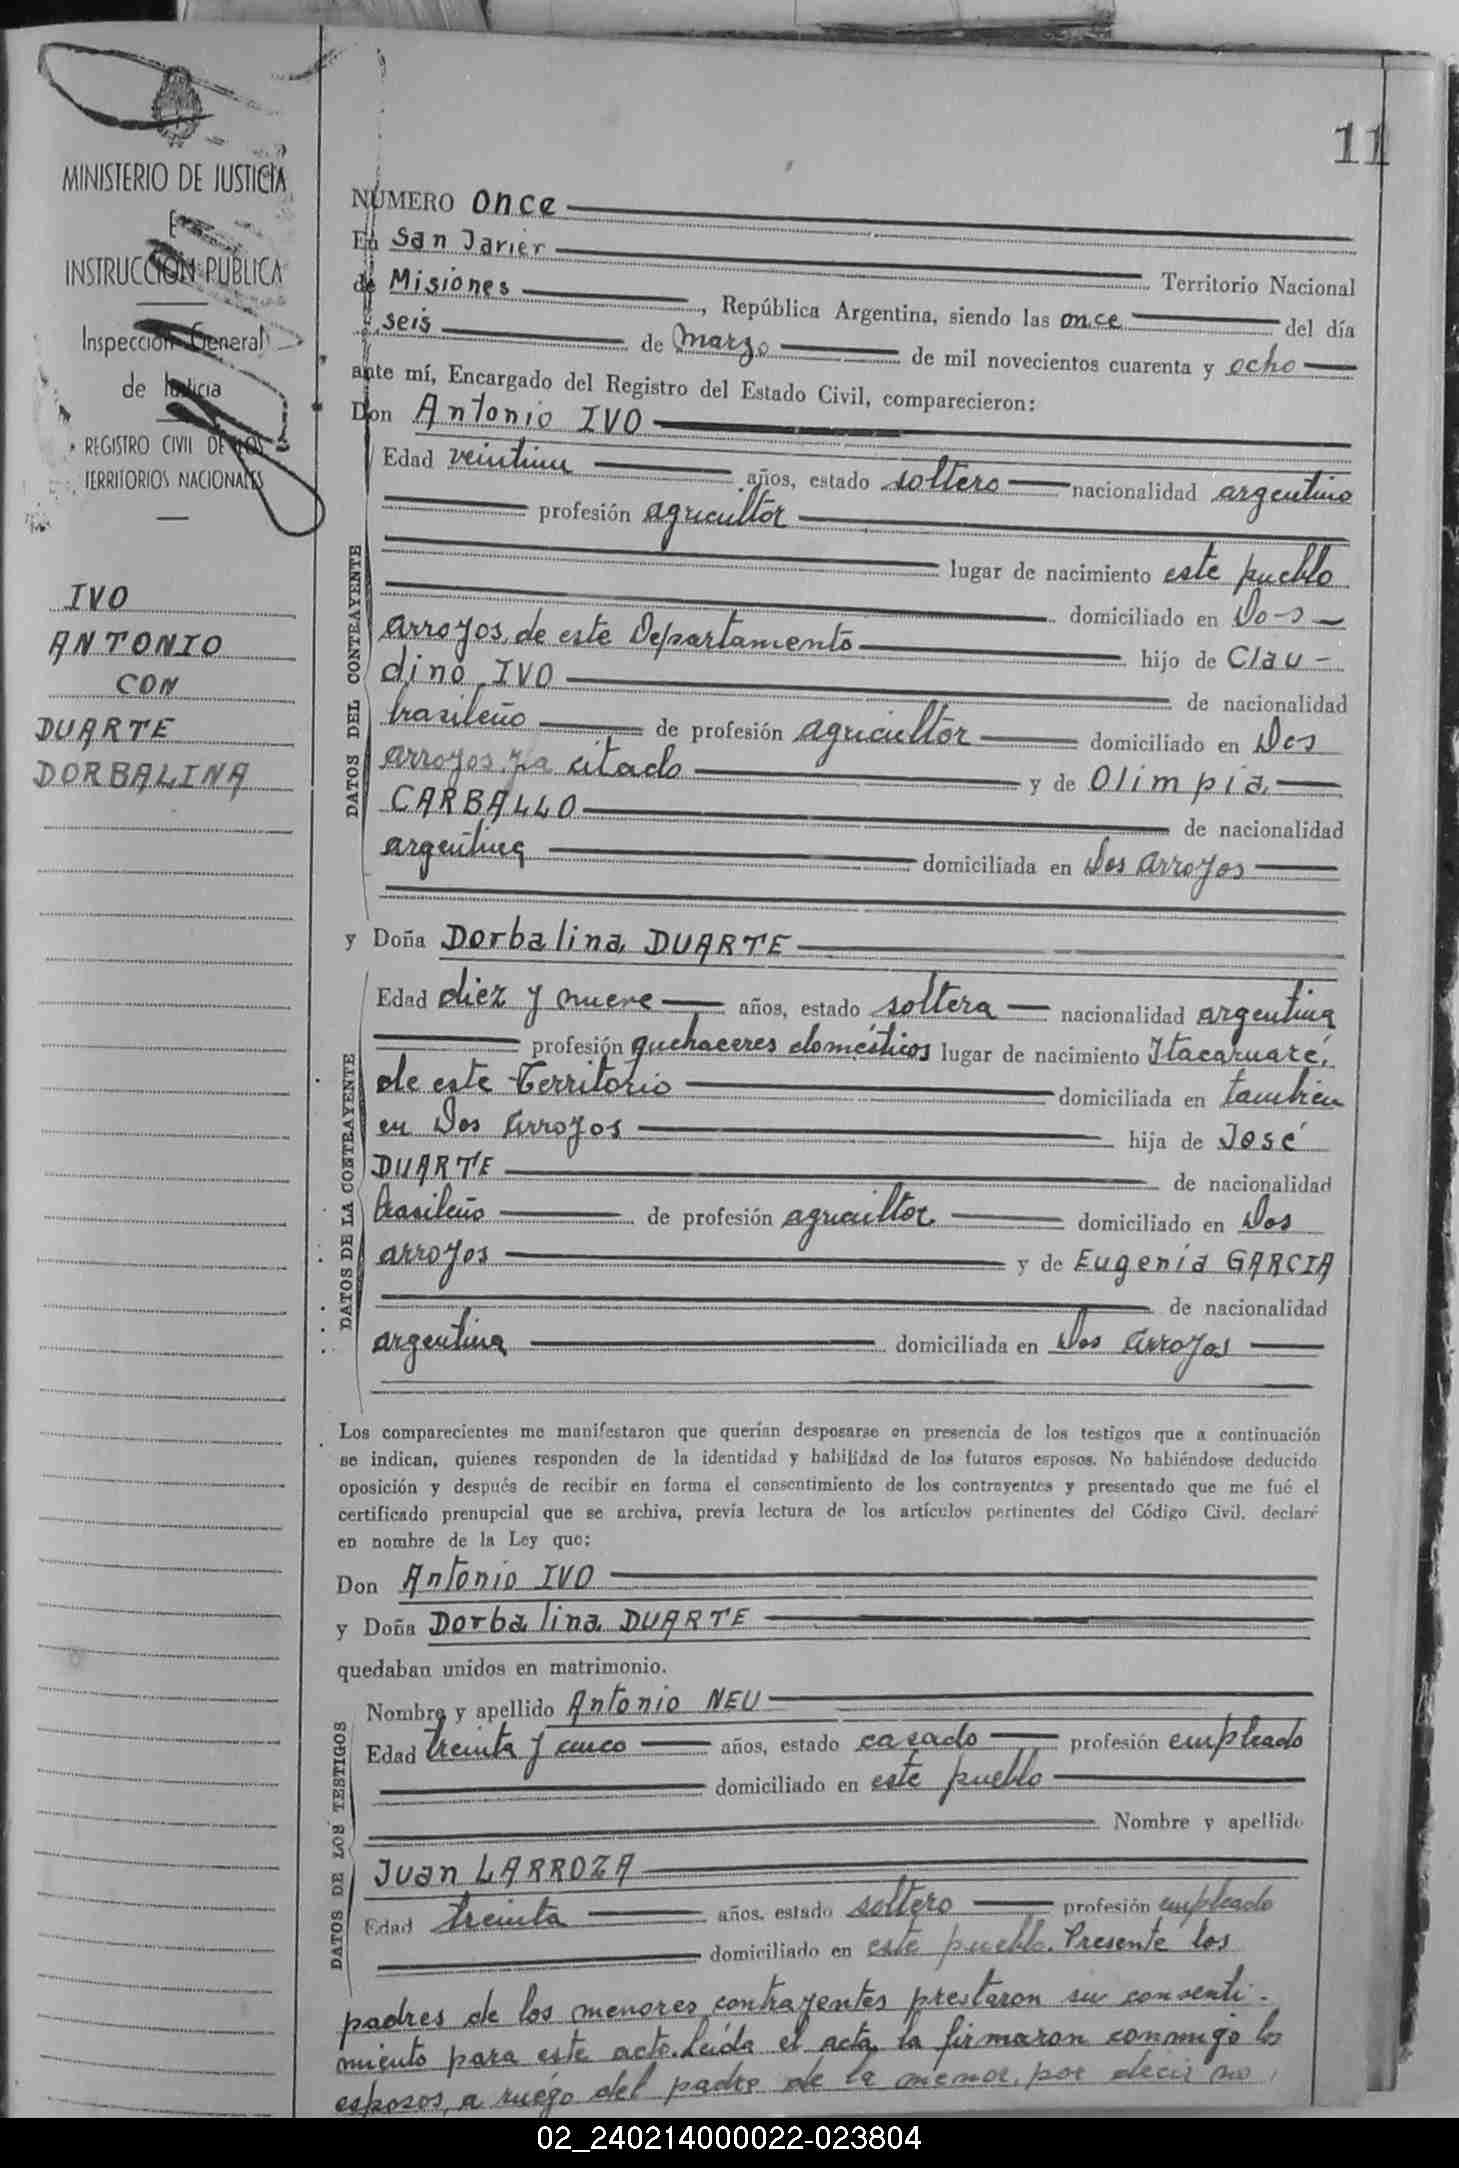 11
MINISTERIO DE JUSTICIA
E
INSTRUCCION PUBLICA
Inspección General
de Justicia
REGISTRO CIVIL DE LOS
TERRITORIOS NACIONALES
IVO
ANTONIO
CON
DUARTE
DORBALINA
NÚMERO once
En San Javier Territorio Nacional
de Misiones, República Argentina, siendo las once del día
seis de Marzo de mil novecientos cuarenta y ocho
ante mí, Encargado del Registro del Estado Civil, comparecieron:
Don Antonio IVO
DATOS DEL CONTEAYENTE
Edad veintiun años, estado soltero nacionalidad argentino
profesión agricultor
lugar de nacimiento este pueblo
domiciliado en Do-s
arroyos, de este Departamento hijo de Clau-
dino IVO de nacionalidad
brasileño de profesión agricultor domiciliado en Dos
arroyos, ya citado y de Olimpia
CARBALLO de nacionalidad
argentina domiciliada en Dos arroyos
y Doña Dorbalina DUARTE
DATOS DE LA CONTEAYENTE
Edad diez y nueve años, estado soltera nacionalidad argentina
profesión quehaceres domésticos lugar de nacimiento Itacaruaré,
de este Territorio domiciliada en tambien
en Dos arroyos hija de José
DUARTE de nacionalidad
brasileño de profesión agricultor domiciliado en Dos
arroyos y de Eugenia GARCIA
de nacionalidad
argentina domiciliada en Dos arroyos
Los comparecientes me manifestaron que querían desposarse en presencia de los testigos que a continuación
se indican, quienes responden de la identidad y habilidad de los futuros esposos. No habiéndose deducido
oposición y después de recibir en forma el consentimiento de los contrayentes y presentado que me fué el
certificado prenupcial que se archiva, previa lectura de los artículos pertinentes del Código Civil, declaré
en nombre de la Ley que:
Don Antonio IVO
y Doña Dorbalina DUARTE
quedaban unidos en matrimonio.
DATOS DE LOS TESTIGOS
Nombre y apellido Antonio NEU
Edad treinta y cinco años, estado casado profesión empleado
domiciliado en este pueblo
Nombre y apellido
Juan LARROZA
Edad treinta años, estado soltero profesión empleado
domiciliado en este pueblo. Presente los
padres de los menores contrayentes prestaron su consenti-
miento para este acto. Leída el acta, la firmaron conmigo los
esposos, a ruego del padre de la menor, por decir no
02_240214000022-023804